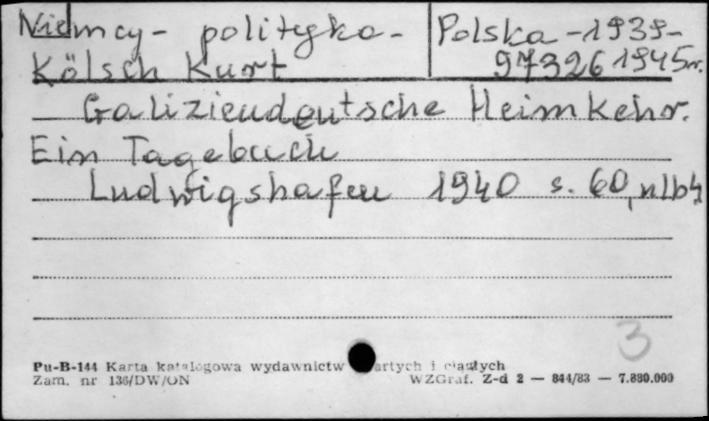 Niemcy - polityka - Polska - 1939-
Kölsch Kurt 97326 1945r.
Galiziendeutsche Heimkehr.
Ein Tagebuch
Ludwigshafen 1940 s. 60, nlb4
3
Pu-B-144 Karta katalogowa wydawnictw zwartych i ciągłych
Zam. nr 136/DW/ON WZGraf. Z-d 2 — 844/83 — 7.880.000